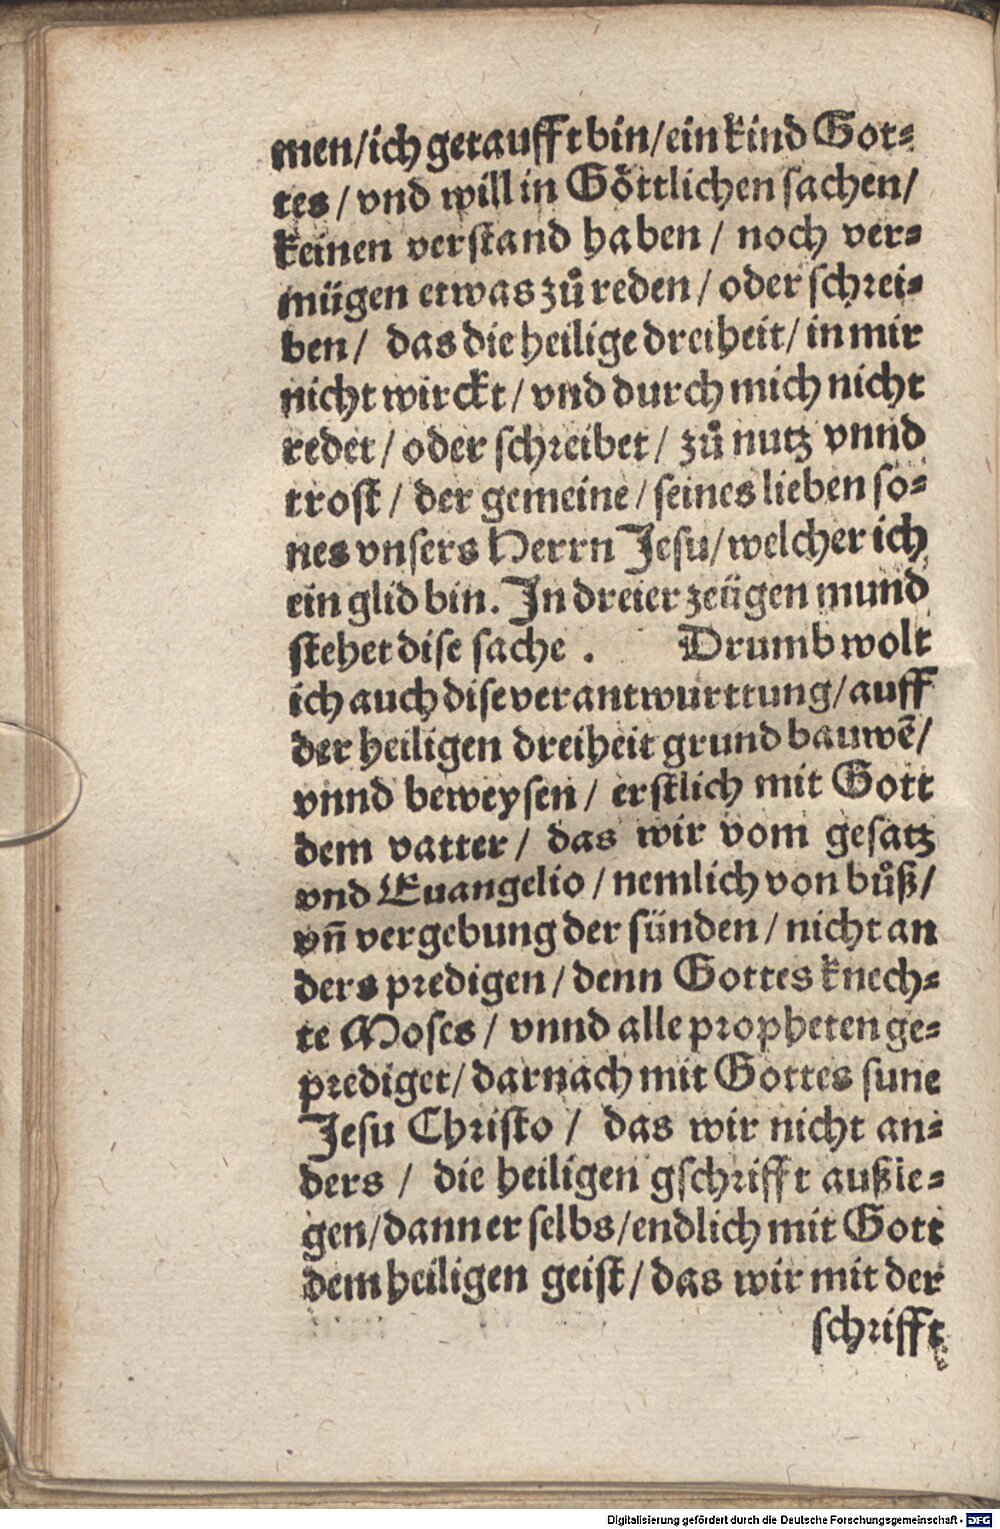 men/ich getaufft bin/ein kind Got-
tes/vnd will in Göttlichen sachen/
keinen verstand haben/noch ver-
mügen etwas zů reden/oder schrei-
ben/ das die heilige dreiheit/in mir
nicht wirckt/vnd durch mich nicht
redet/oder schreibet/ zů nutz vnnd
trost/ der gemeine/seines lieben so-
nes vnsers Herrn Jesu/welcher ich
ein glid bin. In dreier zeügen mund
stehet dise sache. Drumb wolt
ich auch dise verantwurttung/auff
der heiligen dreiheit grund bauwẽ/
vnnd beweysen/ erstlich mit Gott
dem vatter/ das wir vom gesatz
vnd Euangelio/nemlich von bůß/
vñ vergebung der sünden/nicht an
ders predigen/denn Gottes knech-
te Moses/ vnnd alle propheten ge-
prediget/darnach mit Gottes sune
Jesu Christo/ das wir nicht an-
ders/ die heiligen gschrifft außle-
gen/dann er selbs/endlich mit Gott
dem heiligen geist/das wir mit der
schrifft
Digitalisierung gefördert durch die Deutsche Forschungsgemeinschaft - DFG